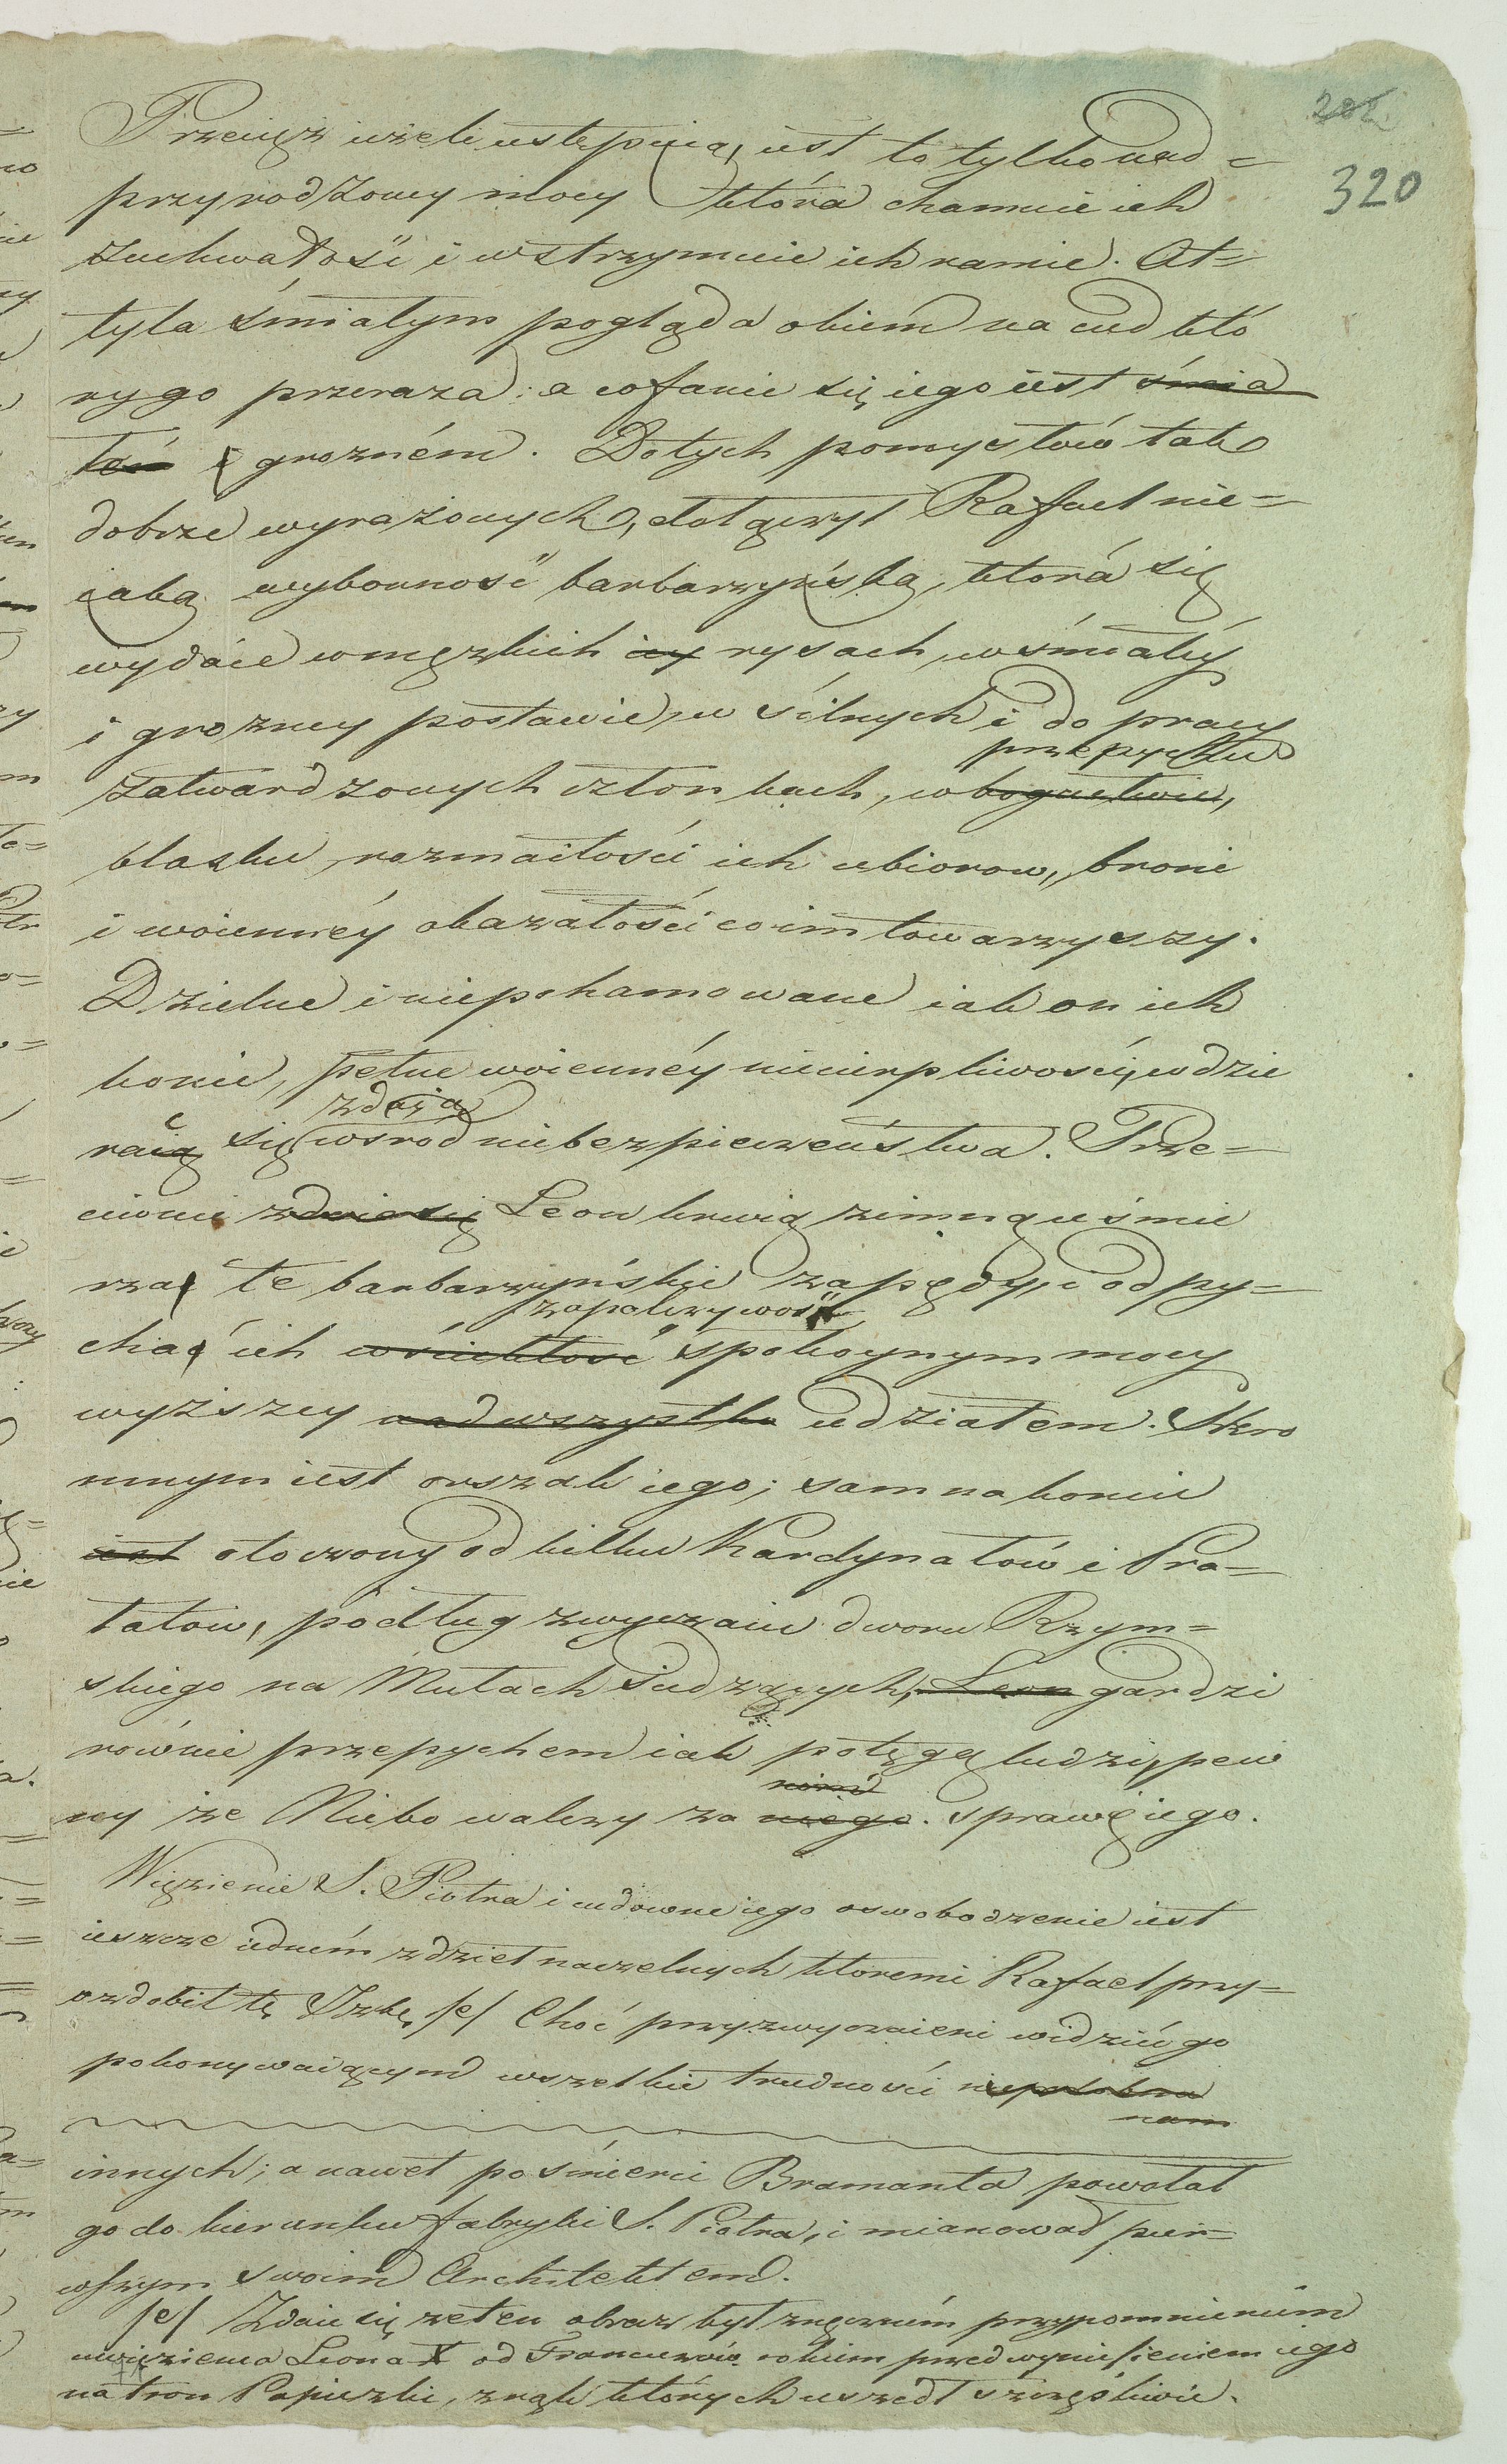 202
320
Przecięż ieżeli ustępuią, iest to tylko nad=
przyrodzoney mocy która hamuie ich
zuchwałość i wstrzymuie ich ramie. At=
tyla śmiałym pogląda okiem na cud któ
rygo przeraza: a cofanie się iego iest śmia
łem i groźném. Do tych pomysłów tak
dobrze wyrażonych, dołączył Rafael nie=
iaką wyborność barbarzyńską, która się
wydaie w męzkich rysach, w śmiałéy
i grozney postawie, w silnych i do pracy
przepychu
zatwardzonych członkach, w bogactwie,
blasku, rozmaitości ich ubiorow, broni
i woiennéy okazałości co im towarzyszy.
Dzielne i niepohamowane iak on ich
konie, pełne woiennéy niecierpliwości, wdzie
zdaią
raią się wsrod niebezpieczeństwa. Prze=
ciwnie zdaie się Leon krwią zimną uśmie
rzać te barbarzyńskie zapędy, i odpy=
zapalczywość
chać ich wściekłość spokoynym mocy
wyższey nad wszystko udziałem. Skro
mnym iest orszak iego; sam na koniu
iest otoczony od kilku Kardynałów i Pra=
łatow, podług zwyczaiu dworu Rzym=
skiego na Mułach siedzących, Leon gardzi
równie przepychem iak potęgą ludzi, pew
nim
ny że Niebo walczy za niego. sprawę iego.
Więzienie S. Piotra i cudowne iego oswobodzenie iest
ieszcze iedném z dzieł naczelnych któremi Rafael przy=
ozdobił tę Izbę /e/ Choć przyzwyczaieni widzieć go
pokonywaiącym wszelkie trudności
nam
innych; a nawet po śmierci Bramanta powołał
go do kierunku fabryki S. Piotra, i mianował pier=
wszym swoim Architektem.
/e/ Zdaie się że ten obraz był zręcznym przypomnieniem
uwięzienia Leona X od Francuzów rokiem przed wyniesieniem iego
na tron Papiezki, z rąk których uszedł szczęśliwie.